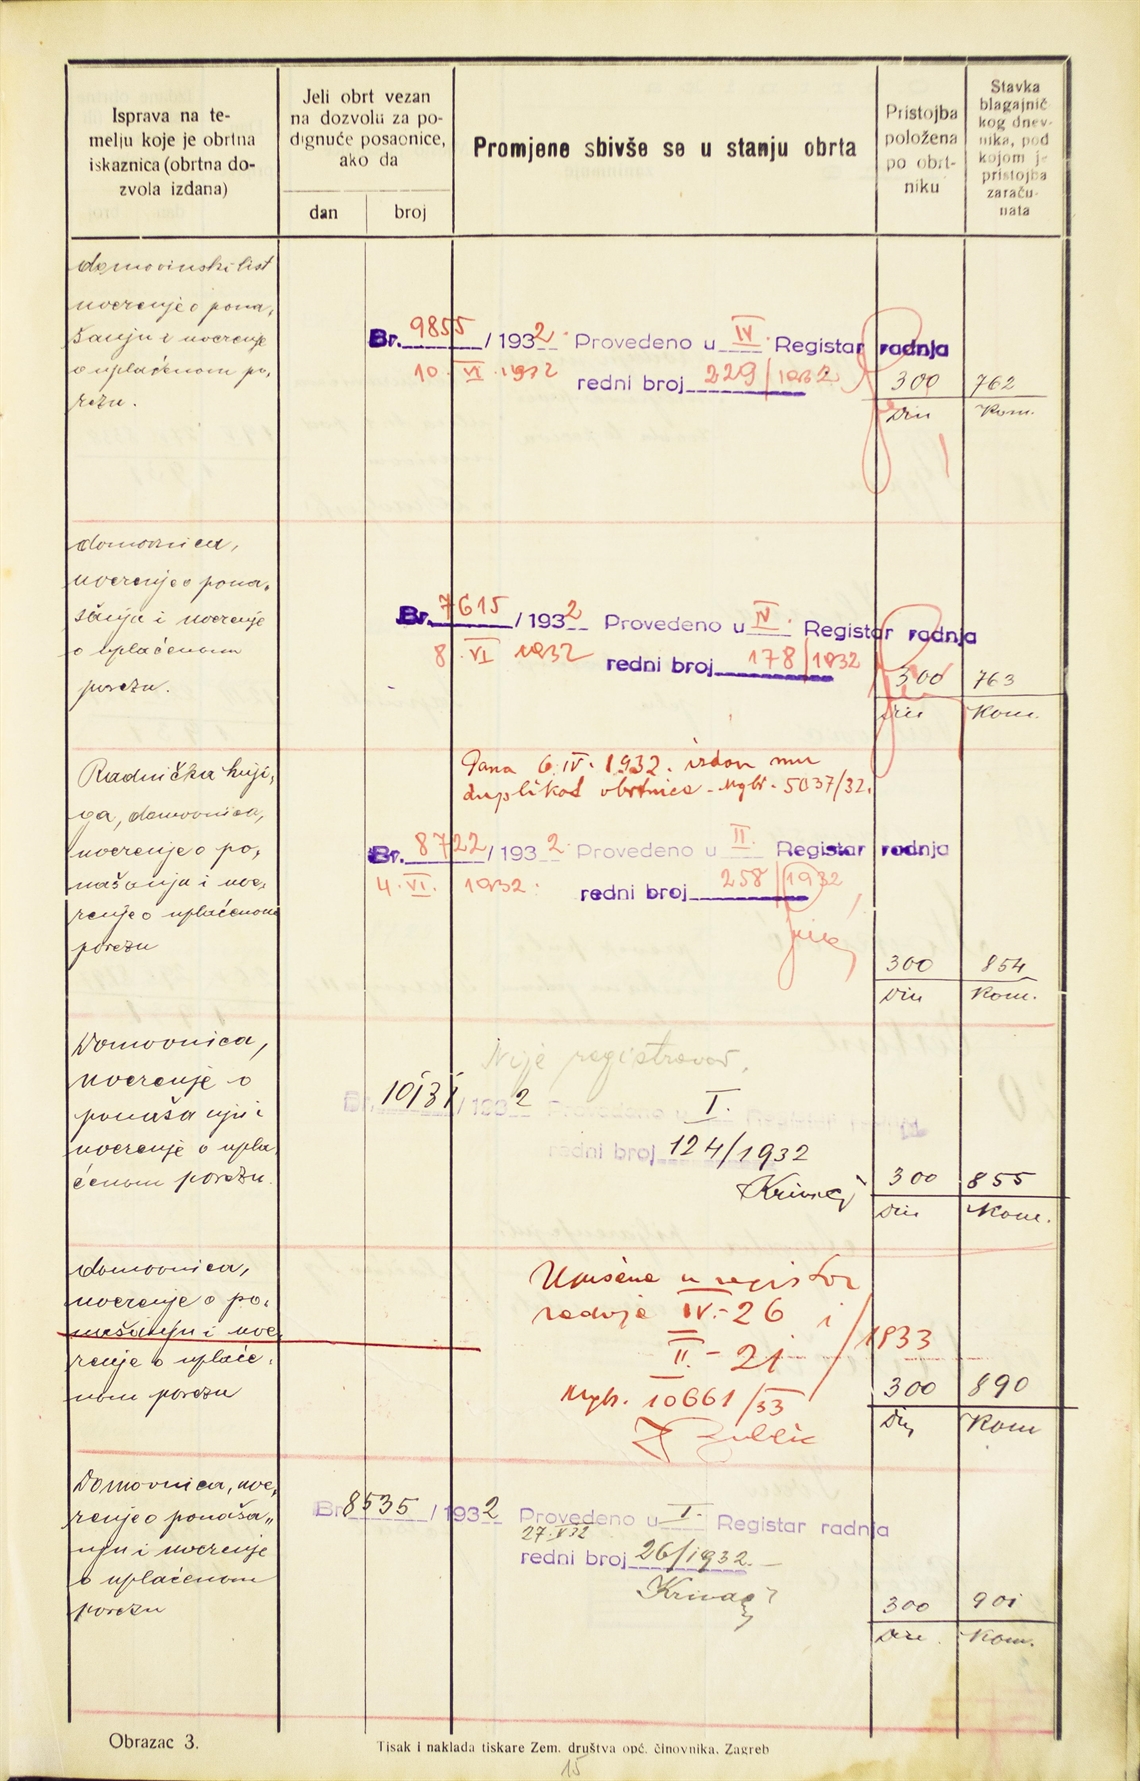 Isprava na te-
melju koje je obrtna
iskaznica (obrtna do-
zvola izdana)
Jeli obrt vezan
na dozvolu za po-
dignuće posaonice,
ako da
dan
broj
Promjene sbivše se u stanju obrta
Pristojba
položena
po obrt-
niku
Stavka
blagajnič
kog dnev-
nika, pod
kojom je
pristojba
zaraču-
nata
domovinski list
uverenje o pona,
šanju i uverenje
o uplaćenom po,
rezu.
Br. 9855 / 1932 Provedeno u IV. Registar radnja
10. VI. 1932 redni broj 229/1932
300 762
Din Kom.
domovnica,
uverenje o pona,
šanju i uverenje
o uplaćenom
porezu.
Br. 7615 / 1932 Provedeno u IV. Registar radnja
8. VI 1932 redni broj 178/1932
300 763
Din Kom.
Radnička knji,
ga, domovnica,
uverenje o po,
našanju i uve,
renje o uplaćenom
porezu
Dana 6. IV. 1932. izdan mu
duplikat obrtnice - Ngbr. 5037/32.
Br. 8722 / 1932 Provedeno u II. Registar radnja
4. VI. 1932. redni broj 258/1932
300 854
Din Kom.
Domovnica,
uverenje o
ponašanju i
uverenje o upla,
ćenom porezu.
Nije registrovao,
Br. 10131 / 1932 Provedeno u I. Registar radnja
redni broj 124/1932
300 855
Din Kom.
domovnica,
uverenje o po,
našanju i uve,
renje o uplaće,
nom porezu
u registar
radnje IV.-26 i
II.-21 / 1933
Ngbr. 10661/33
300 890
Din Kom
Domovnica, uve,
renje o ponaša,,
nju i uverenje
o uplaćenom
porezu
Br. 8535 / 1932 Provedeno u I. Registar radnja
27. V 32
redni broj 26/1932.
300 901
Din. Kom.
Obrazac 3.
Tisak i naklada tiskare Zem. društva opć. činovnika, Zagreb
15